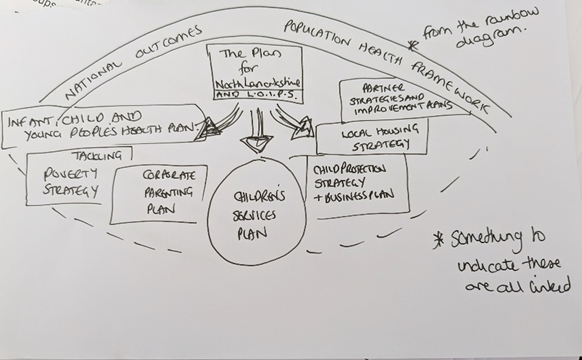 NATIONAL OUTCOMES
POPULATION HEALTH FRAMEWORK
* from the rainbow
diagram.
The Plan
for
North Lanarkshire
AND L.O.I.P.S.
PARTNER
STRATEGIES AND
IMPROVEMENT PLANS
INFANT, CHILD AND
YOUNG PEOPLES HEALTH PLAN
LOCAL HOUSING
STRATEGY
TACKLING
POVERTY
STRATEGY
CORPORATE
PARENTING
PLAN
CHILDREN'S
SERVICES
PLAN
CHILD PROTECTION
STRATEGY
+ BUSINESS PLAN
* Something to
indicate these
are all linked